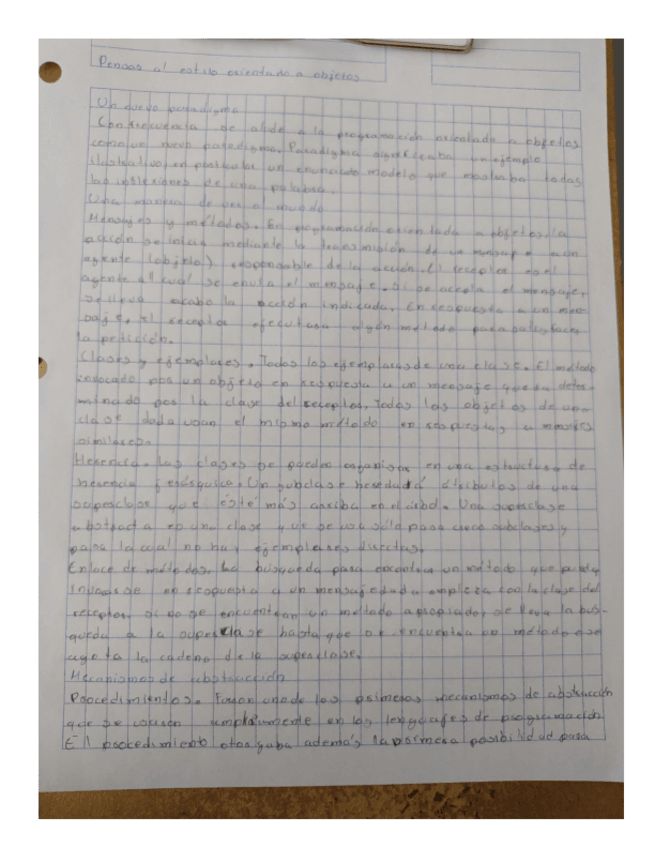 Pensar al estilo orientado a objetos
Un nuevo paradigma
Con frecuencia se alude a la programación orientada a objetos
como un nuevo paradigma. Paradigma significaba un ejemplo
ilustrativo, en particular un enunciado modelo que mostraba todas
las inflexiones de una palabra.
Una manera de ver el mundo
Mensajes y métodos. En programación orientada a objetos, la
acción se inicia mediante la transmisión de un mensaje a un
agente (objeto) responsable de la acción. El receptor es el
agente al cual se envía el mensaje. Si se acepta el mensaje,
se lleva acabo la acción indicada. En respuesta a un men-
saje, el receptor ejecutara algún método para satisfacer
la petición.
Clases y ejemplares. Todos los ejemplares de una clase. El método
invocado por un objeto en respuesta a un mensaje queda deter-
minado por la clase del receptor. Todos los objetos de una
clase dada usan el mismo método en respuestas a
similares.
Herencia. Las clases se pueden organizar en una estructura de
herencia jerárquica. Un subclase heredará atributos de una
superclase que esté más arriba en el árbol. Una superclase
abstracta es una clase que se usa sólo para crear subclases y
para la cual no hay ejemplares directas.
Enlace de métodos. La búsqueda para encontrar un método que pueda
invocarse en respuesta a un mensaje dada empieza con la clase del
receptor. si no se encuentran un método apropiado, se lleva la bús-
queda a la superclase hasta que se encuentra un método o se
agota la cadena de la superclase.
Mecanismos de abstracción
Procedimientos. Fueron uno de los primeros mecanismos de abstracción
que se usaron ampliamente en los lenguajes de programación
El procedimiento otorgaba además la primera posibilidad para